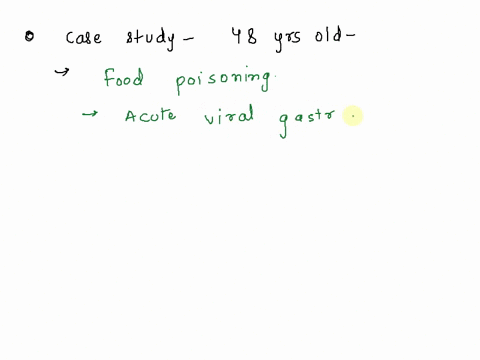 Case study - 48 yrs old -
→ Food poisoning.
→ Acute viral gastr